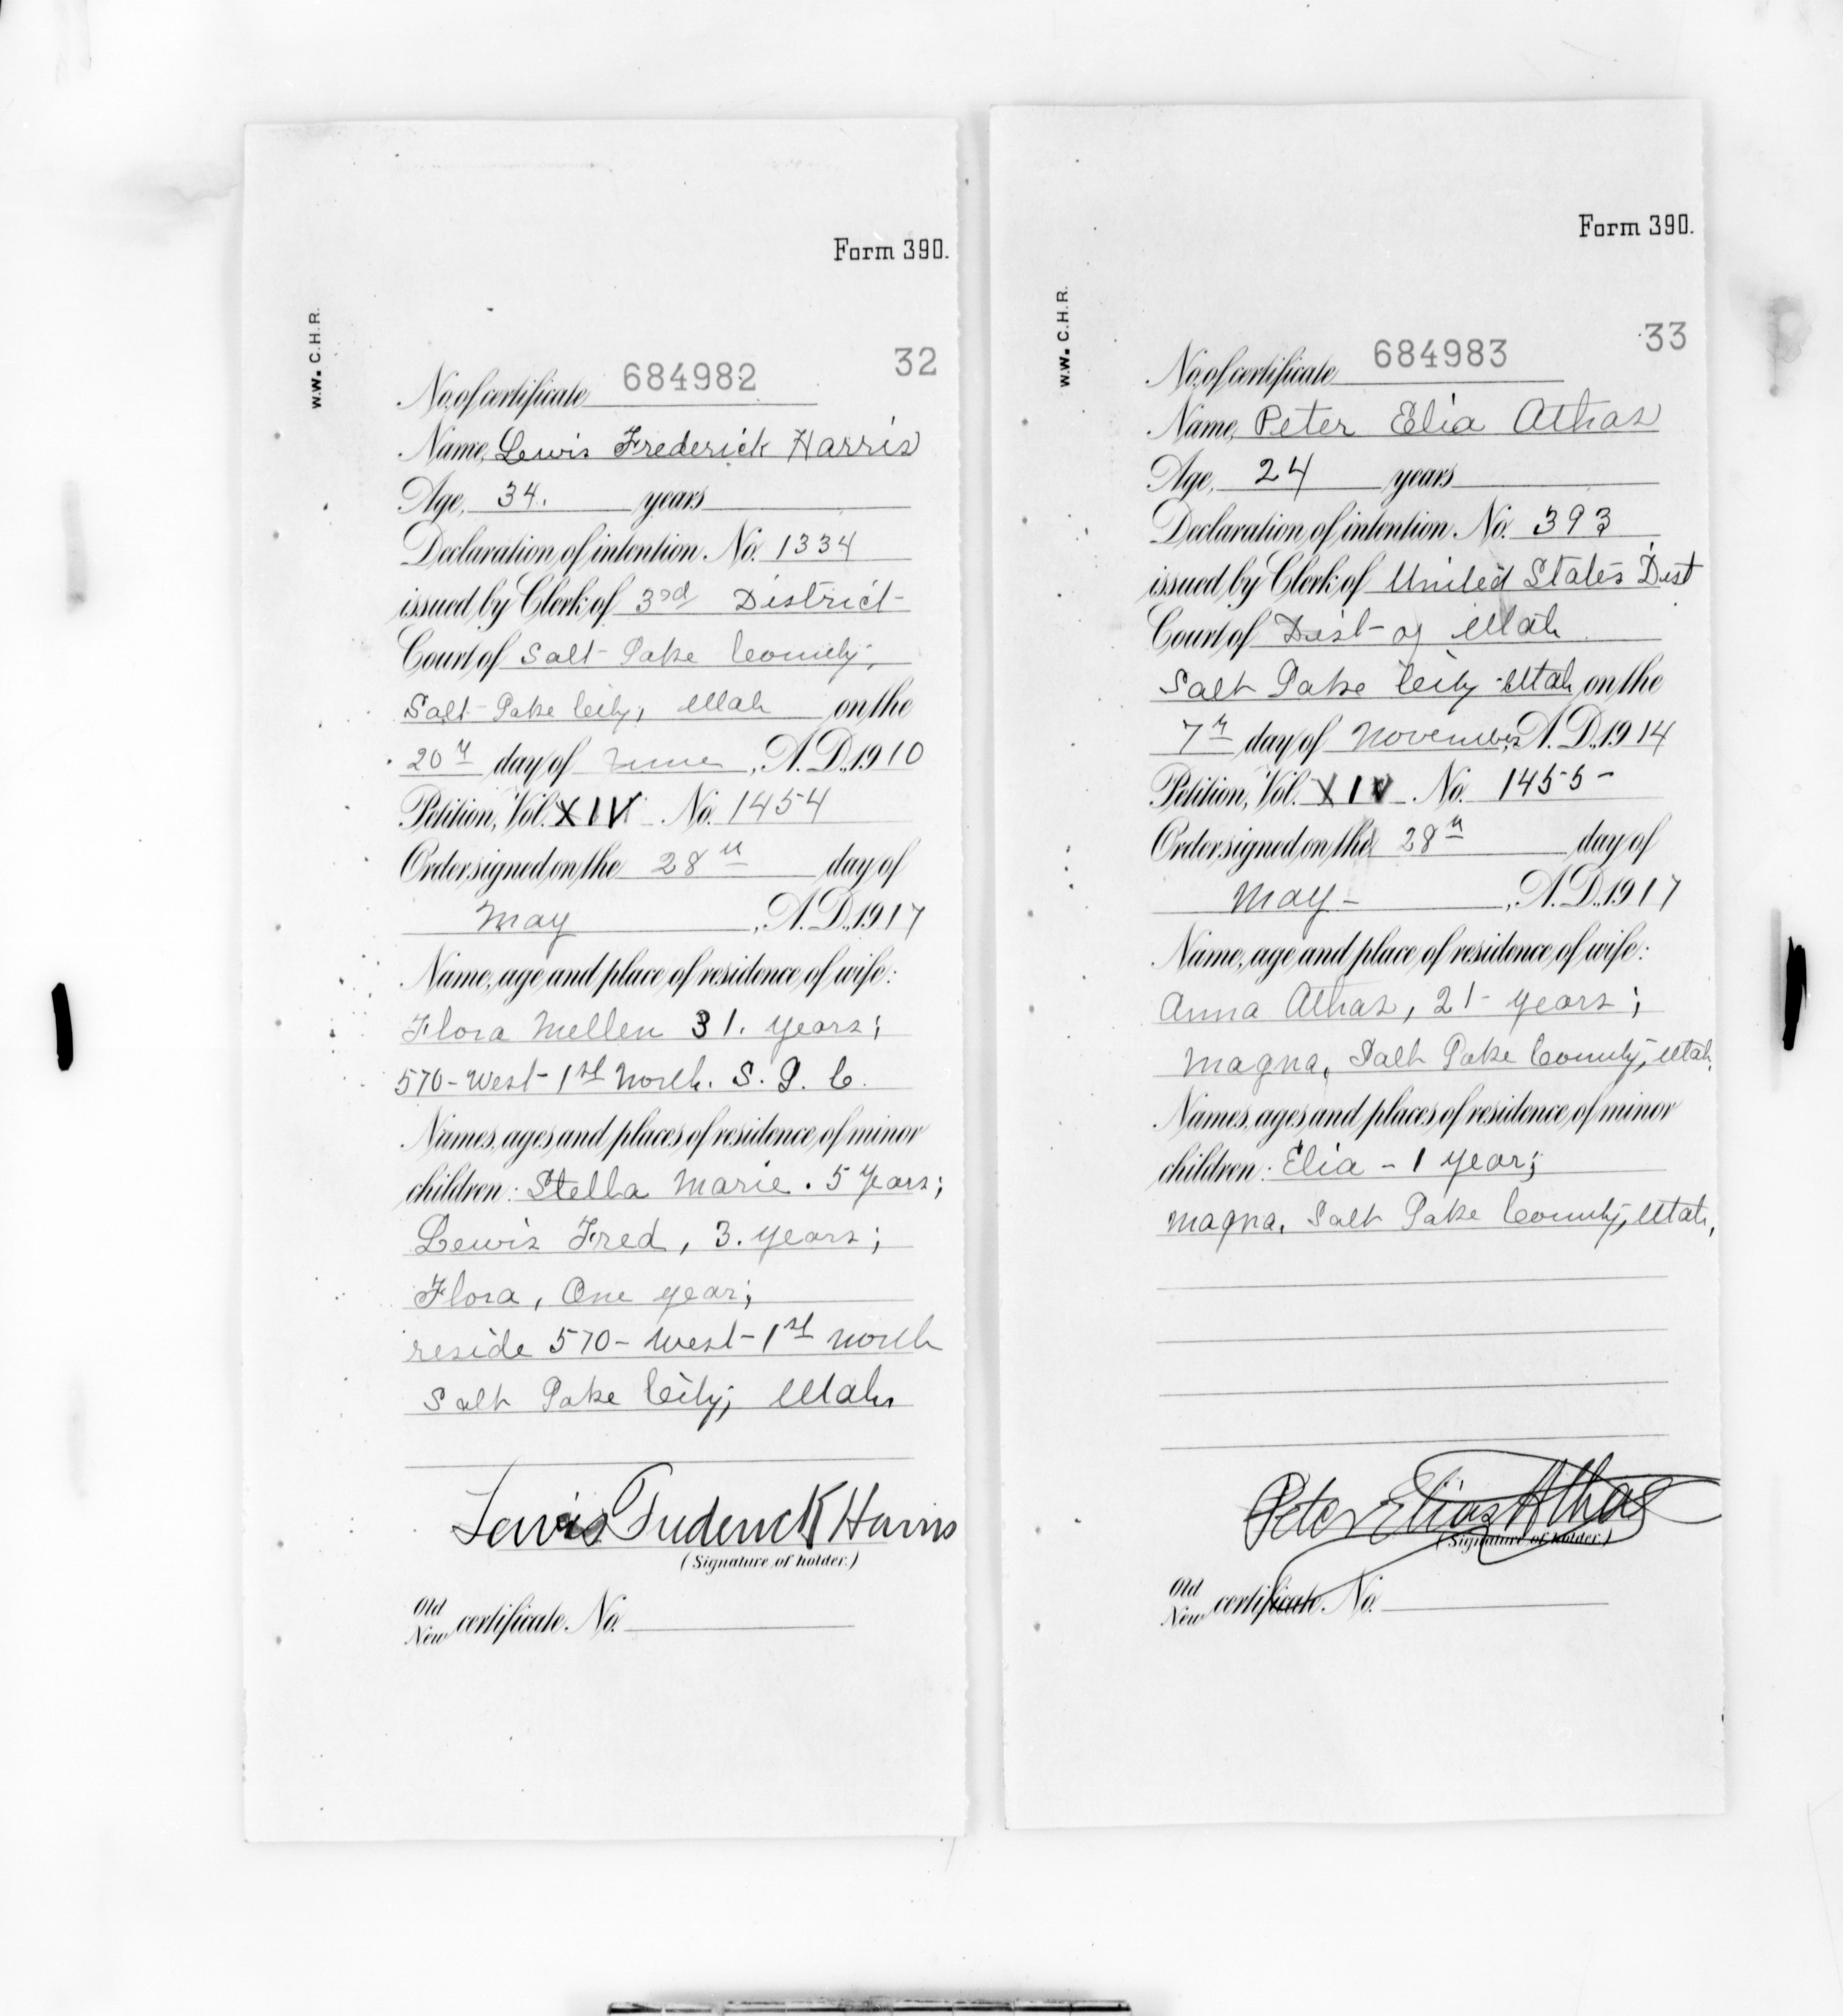 Form 390.
W.W. C.H.R.
32
No. of certificate 684982
Name, Lewis Frederick Harris
Age, 34. years
Declaration of intention No. 1334
issued by Clerk of 3rd District
Court of Salt Lake County,
Salt Lake City, Utah on the
20th day of June, A.D. 1910
Petition, Vol. XIV No. 1454
Order signed on the 28th day of
May, A.D. 1917
Name, age and place of residence of wife:
Flora Mellen 31. years;
570-West-1st North. S. L. C.
Names, ages and places of residence of minor
children: Stella Marie. 5 Years;
Lewis Fred, 3. years;
Flora, One year;
reside 570-West-1st North
Salt Lake City, Utah
Lewis Frederick Harris
(Signature of holder.)
Old
New certificate No.
Form 390.
W.W. C.H.R.
33
No. of certificate 684983
Name, Peter Elia Athas
Age, 24 years
Declaration of intention No. 393
issued by Clerk of United States Dist
Court of Dist of Utah
Salt Lake City Utah on the
7th day of November, A.D. 1914
Petition, Vol. XIV No. 1455-
Order signed on the 28th day of
May-, A.D. 1917
Name, age and place of residence of wife:
Anna Athas, 21- years;
Magna, Salt Lake County, Utah.
Names, ages and places of residence of minor
children: Elia - 1 year;
Magna, Salt Lake County, Utah,
Peter Elias Athas
(Signature of holder.)
Old
New certificate No.